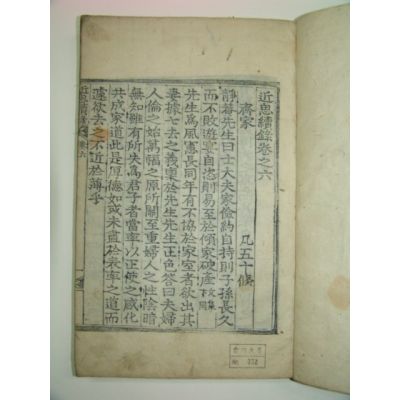 近思續錄卷之六
齊家 凡五十條
靜菴先生曰士大夫家儉約自持則子孫長久
而不敗遊宴自恣則易至於傾家破產文集下同
先生爲風憲長同年有不協於家室者欲出其
妻據七去之義稟於先生先生正色答曰夫婦
人倫之始萬福之原所關至重婦人之性陰暗
無知雖有所失爲君子者當率以正使之感化
共成家道此是厚德如或未盡於表率之道而
遽欲去之不近於薄乎